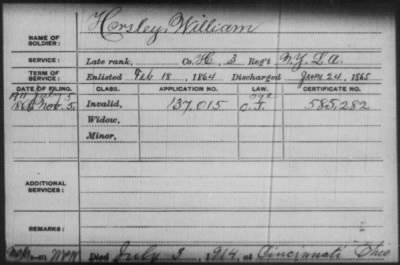 NAME OF SOLDIER: Horsley, William
SERVICE: Late rank, Co. H, 3 Reg't N.Y. L.A.
TERM OF SERVICE: Enlisted Feb 18, 1864 Discharged June 24, 1865
DATE OF FILING. CLASS. APPLICATION NO. LAW. CERTIFICATE NO.
1866 Nov. 5, Invalid, 137,015 585,282
Widow,
Minor,
ADDITIONAL SERVICES:
REMARKS:
Died July 3, 1914, at Cincinnati Ohio